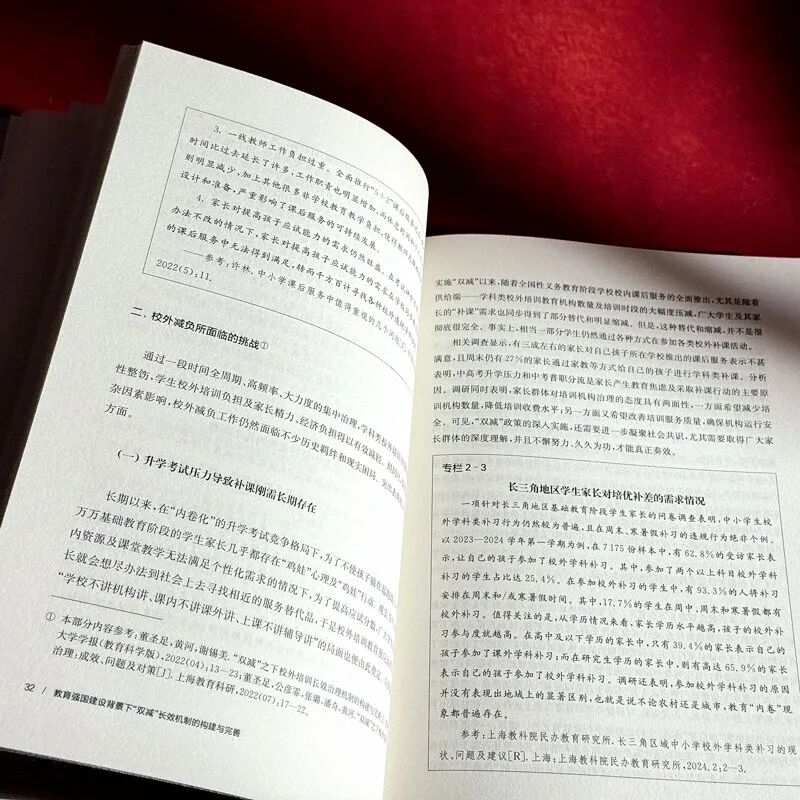 3. 一线教师工作负担过重、全面推行“5+2”课后服务
时间比过去延长了许多,工作职责也明显增加,而休息时间
则明显减少,加上其他很多非学校教育教学负担,使得教师
设计和准备,严重影响了课后服务的可持续发展。
4. 家长对提高孩子应试能力的需求仍然旺盛。在考试
办法不改的情况下,家长对提高孩子应试能力的需求在学校
的课后服务中无法得到满足,转而千方百计寻找各种
——参考:许林.中小学课后服务中值得重视的几个
2022(5):11.
二、校外减负所面临的挑战①
通过一段时间全周期、高频率、大力度的集中治理,学科类校外培训
性整伤,学生校外培训负担及家长精力、经济负担得以有效减轻。
杂因素影响,校外减负工作仍然面临不少历史羁绊和现实困局,
方面。
(一)升学考试压力导致补课刚需长期存在
长期以来,在“内卷化”的升学考试竞争格局下,为了不使孩子输在
万万基础教育阶段的学生家长几乎都存在“鸡娃”心理及“鸡娃”行动。
内资源及课堂教学无法满足个性化需求的情况下,为了提高应试分数,
长就会想尽办法到社会上去寻找相近的服务替代品,于是校外培训教育
“学校不讲机构讲、课内不讲课外讲、上课不讲辅导讲”的局面也便由此
① 本部分内容参考:董圣足,黄河,谢锡美.“双减”之下校外培训长效治理机制的构建与
大学学报(教育科学版),2022(04):13—23;董圣足,公彦霏,张璐,潘奇,黄河.“双减”之下
治理:成效、问题及对策[J].上海教育科研,2022(07):17—22.
32 / 教育强国建设背景下“双减”长效机制的构建与完善
实施“双减”以来,随着全国性义务教育阶段学校校内课后服务的全面推出,尤其是随着
供给端——学科类校外培训教育机构数量及培训时段的大幅度压减,广大学生及其家
长的“补课”需求也同步得到了部分替代和明显缩减。但是,这种替代和缩减,并不是很
彻底很完全。事实上,相当一部分学生仍然通过各种方式在参加各类校外补习活动。
相关调查显示,有三成左右的家长对自己孩子所在学校推出的课后服务表示不甚
满意,且周末仍有27%的家长通过家教等方式给自己的孩子进行学科类补课。分析
表明,中高考升学压力和中考普职分流是家长产生教育焦虑及采取补课行动的主要原
因。调研同时表明,家长群体对培训机构治理的态度具有两面性,一方面希望减少培
训机构数量,降低培训收费水平;另一方面又希望改善培训服务质量,确保机构运行安
全。可见,“双减”政策的深入实施,还需要进一步凝聚社会共识,尤其需要取得广大家
长群体的深度理解,并且不懈努力、久久为功,才能真正奏效。
专栏2-3
长三角地区学生家长对培优补差的需求情况
一项针对长三角地区基础教育阶段学生家长的问卷调查表明,中小学生校
外学科类补习行为仍然较为普遍,且在周末、寒暑假补习的违规行为绝非个例。
以2023—2024学年第一学期为例,在7175份样本中,有62.8%的受访家长表
示,让自己的孩子参加了校外学科补习。其中,参加了两个以上科目校外学科
补习的学生占比达25.4%。在参加校外补习的学生中,有93.3%的人将补习
安排在周末和/或寒暑假时间。其中,17.7%的学生在周中、周末和寒暑假都有
校外补习。值得关注的是,从学历情况来看,家长学历水平越高,孩子的校外补
习参与度就越高。在高中及以下学历的家长中,只有39.4%的家长表示自己的
孩子参加了课外学科补习;而在研究生学历的家长中,则有高达65.9%的家长
表示自己的孩子参加了校外学科补习。调研还表明,参加校外学科补习的原因
并没有表现出地域上的显著区别,也就是说不论农村还是城市,教育“内卷”现
象都普遍存在。
参考:上海教科院民办教育研究所.长三角区域中小学校外学科类补习的现
状、问题及建议[R].上海:上海教科院民办教育研究所,2024.2;2—3.